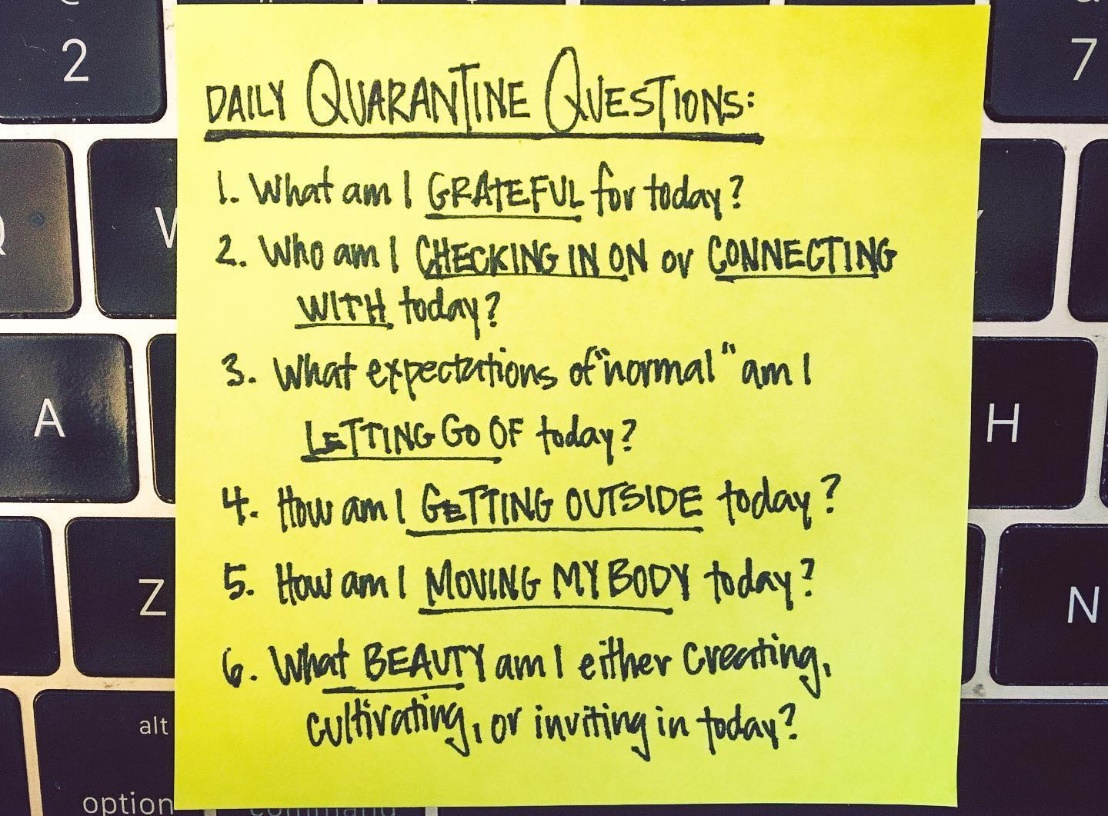 2
7
Q
W
A
H
Z
N
alt
option
command
DAILY QUARANTINE QUESTIONS:
1. What am I GRATEFUL for today?
2. Who am I CHECKING IN ON or CONNECTING
WITH today?
3. What expectations of "normal" am I
LETTING GO OF today?
4. How am I GETTING OUTSIDE today?
5. How am I MOVING MY BODY today?
6. What BEAUTY am I either creating,
cultivating, or inviting in today?